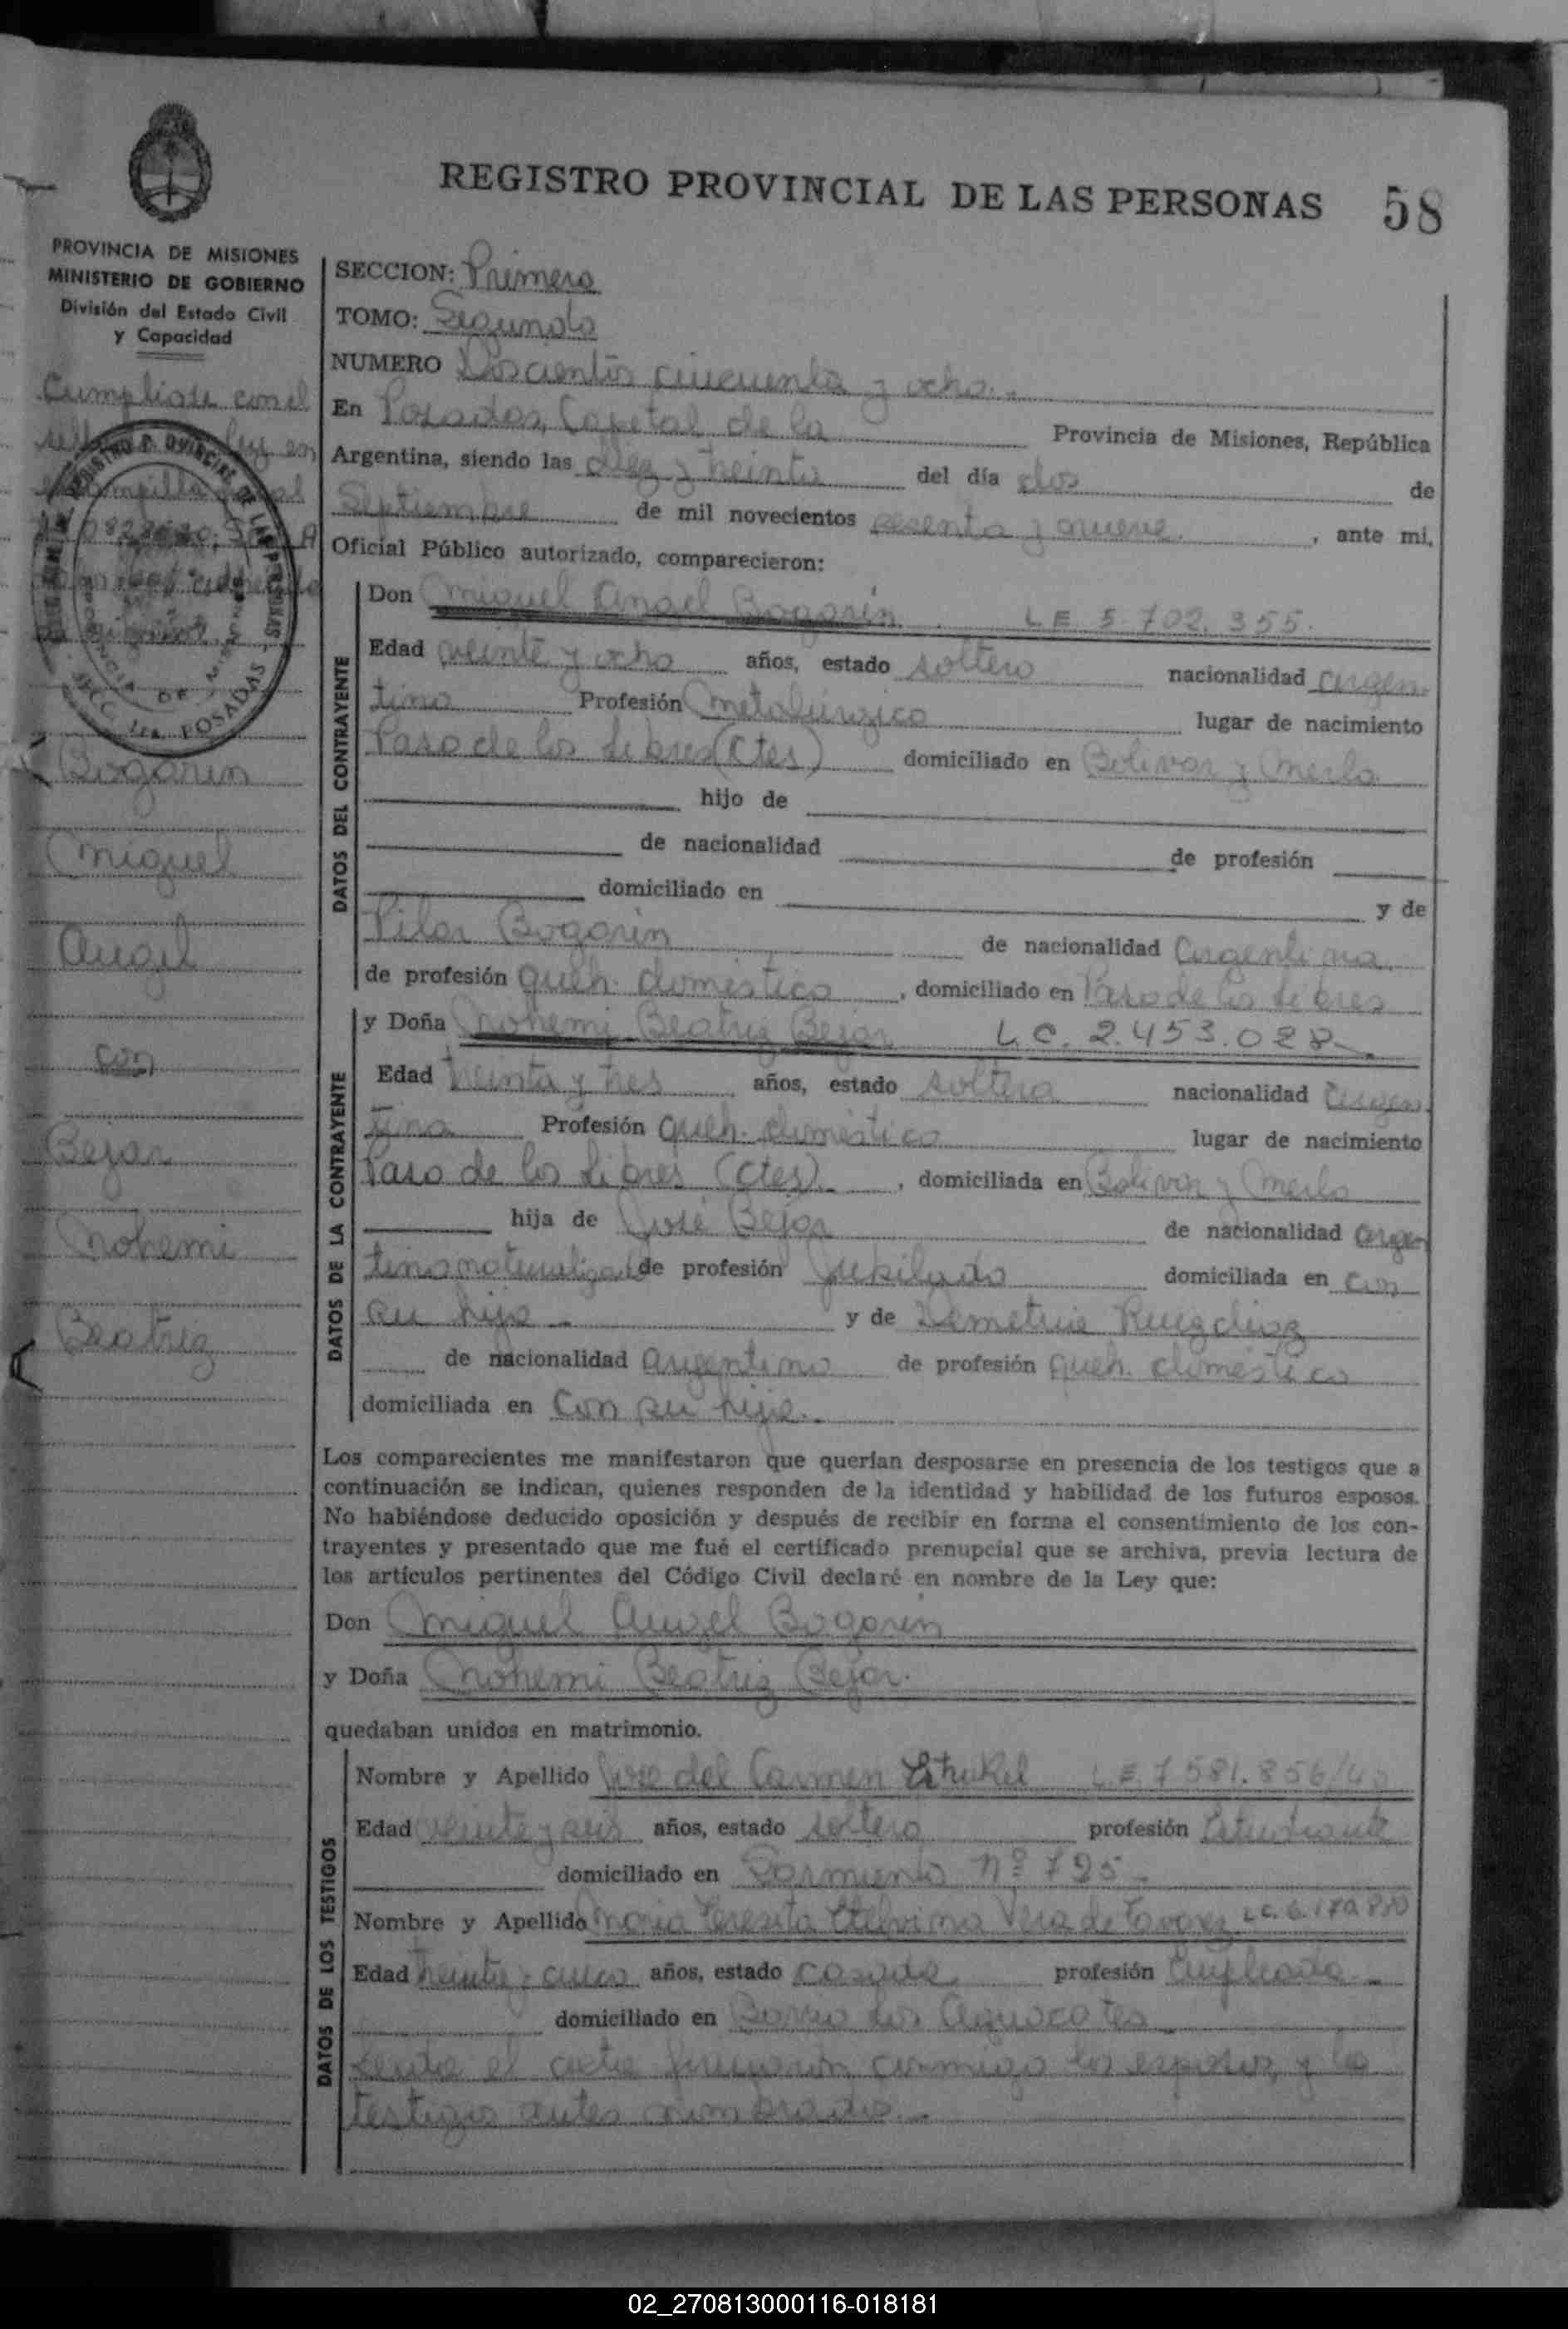 REGISTRO PROVINCIAL DE LAS PERSONAS 58
PROVINCIA DE MISIONES
MINISTERIO DE GOBIERNO
División del Estado Civil
y Capacidad
Bogarin
Miguel
Angel
con
Bejar
Nohemi
Beatriz
SECCION: Primera
TOMO: Segundo
NUMERO Doscientos cincuenta y ocho.-
En Posadas, Capital de la Provincia de Misiones, República
Argentina, siendo las diez y treinta del día dos de
Septiembre de mil novecientos sesenta y nueve, ante mi,
Oficial Público autorizado, comparecieron:
DATOS DEL CONTRAYENTE
Don Miguel Angel Bogarin L.E. 5.702.355.
Edad veinte y ocho años, estado soltero nacionalidad argen
tino Profesión metalúrgico lugar de nacimiento
Paso de los Libres (Ctes) domiciliado en Bolivar y Merlo
hijo de
de nacionalidad de profesión
domiciliado en y de
Pilar Bogarin de nacionalidad Argentina
de profesión queh. doméstico, domiciliado en Paso de los Libres
DATOS DE LA CONTRAYENTE
y Doña Nohemi Beatriz Bejar L.C. 2.453.028.-
Edad treinta y tres años, estado soltera nacionalidad argen
tina Profesión queh. doméstico lugar de nacimiento
Paso de los Libres (Ctes), domiciliada en Bolivar y Merlo
hija de José Bejar de nacionalidad argen
tino de profesión Jubilado domiciliada en con
su hija - y de Demetria Ruizdiaz
de nacionalidad argentina de profesión queh. doméstico
domiciliada en con su hija.-
Los comparecientes me manifestaron que querían desposarse en presencia de los testigos que a
continuación se indican, quienes responden de la identidad y habilidad de los futuros esposos.
No habiéndose deducido oposición y después de recibir en forma el consentimiento de los con-
trayentes y presentado que me fué el certificado prenupcial que se archiva, previa lectura de
los artículos pertinentes del Código Civil declaré en nombre de la Ley que:
Don Miguel Angel Bogarin
y Doña Nohemi Beatriz Bejar.
quedaban unidos en matrimonio.
DATOS DE LOS TESTIGOS
Nombre y Apellido José del Carmen L.E. 7.581.856
Edad veinte y seis años, estado soltero profesión Estudiante
domiciliado en Sarmiento Nº 725 -
Nombre y Apellido Maria Teresita Etelvina Vera de Tavarez L.C.
Edad treinta y cinco años, estado casada profesión Empleada -
domiciliado en Barrio Los Aguacates
el acta firmaron conmigo los esposos y los
testigos antes nombrados.-
02_270813000116-018181